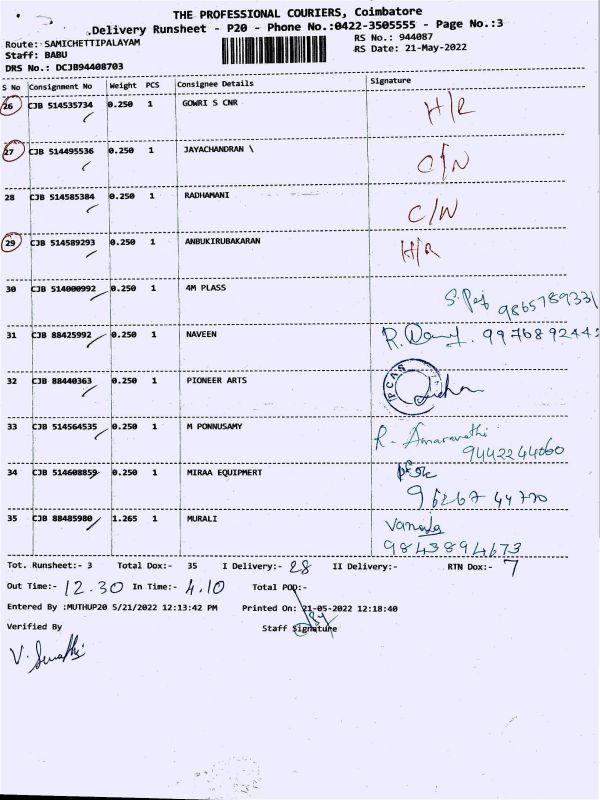 THE PROFESSIONAL COURIERS, Coimbatore
Delivery Runsheet - P20 - Phone No.:0422-3505555 - Page No.:3
Route:- SAMICHETTIPALAYAM
RS No.: 944087
Staff: BABU
RS Date: 21-May-2022
DRS No.: DCJB94408703
S No Consignment No Weight PCS Consignee Details Signature
26 CJB 514535734 0.250 1 GOWRI S CNR H/R
27 CJB 514495536 0.250 1 JAYACHANDRAN \
28 CJB 514585384 0.250 1 RADHAMANI C/W
29 CJB 514589293 0.250 1 ANBUKIRUBAKARAN H/R
30 CJB 514000992 0.250 1 4M PLASS 9865789331
31 CJB 88425992 0.250 1 NAVEEN R. 9976892442
32 CJB 88440363 0.250 1 PIONEER ARTS
33 CJB 514564535 0.250 1 M PONNUSAMY R. Amaravathi
9442244060
34 CJB 514608859 0.250 1 MIRAA EQUIPMERT
9626744770
35 CJB 88485980 1.265 1 MURALI
9843894673
Tot. Runsheet:- 3 Total Dox:- 35 I Delivery:- 28 II Delivery:- RTN Dox:- 7
Out Time:- 12.30 In Time:- 4.10 Total POD:-
Entered By :MUTHUP20 5/21/2022 12:13:42 PM Printed On: 21-05-2022 12:18:40
Verified By Staff Signature